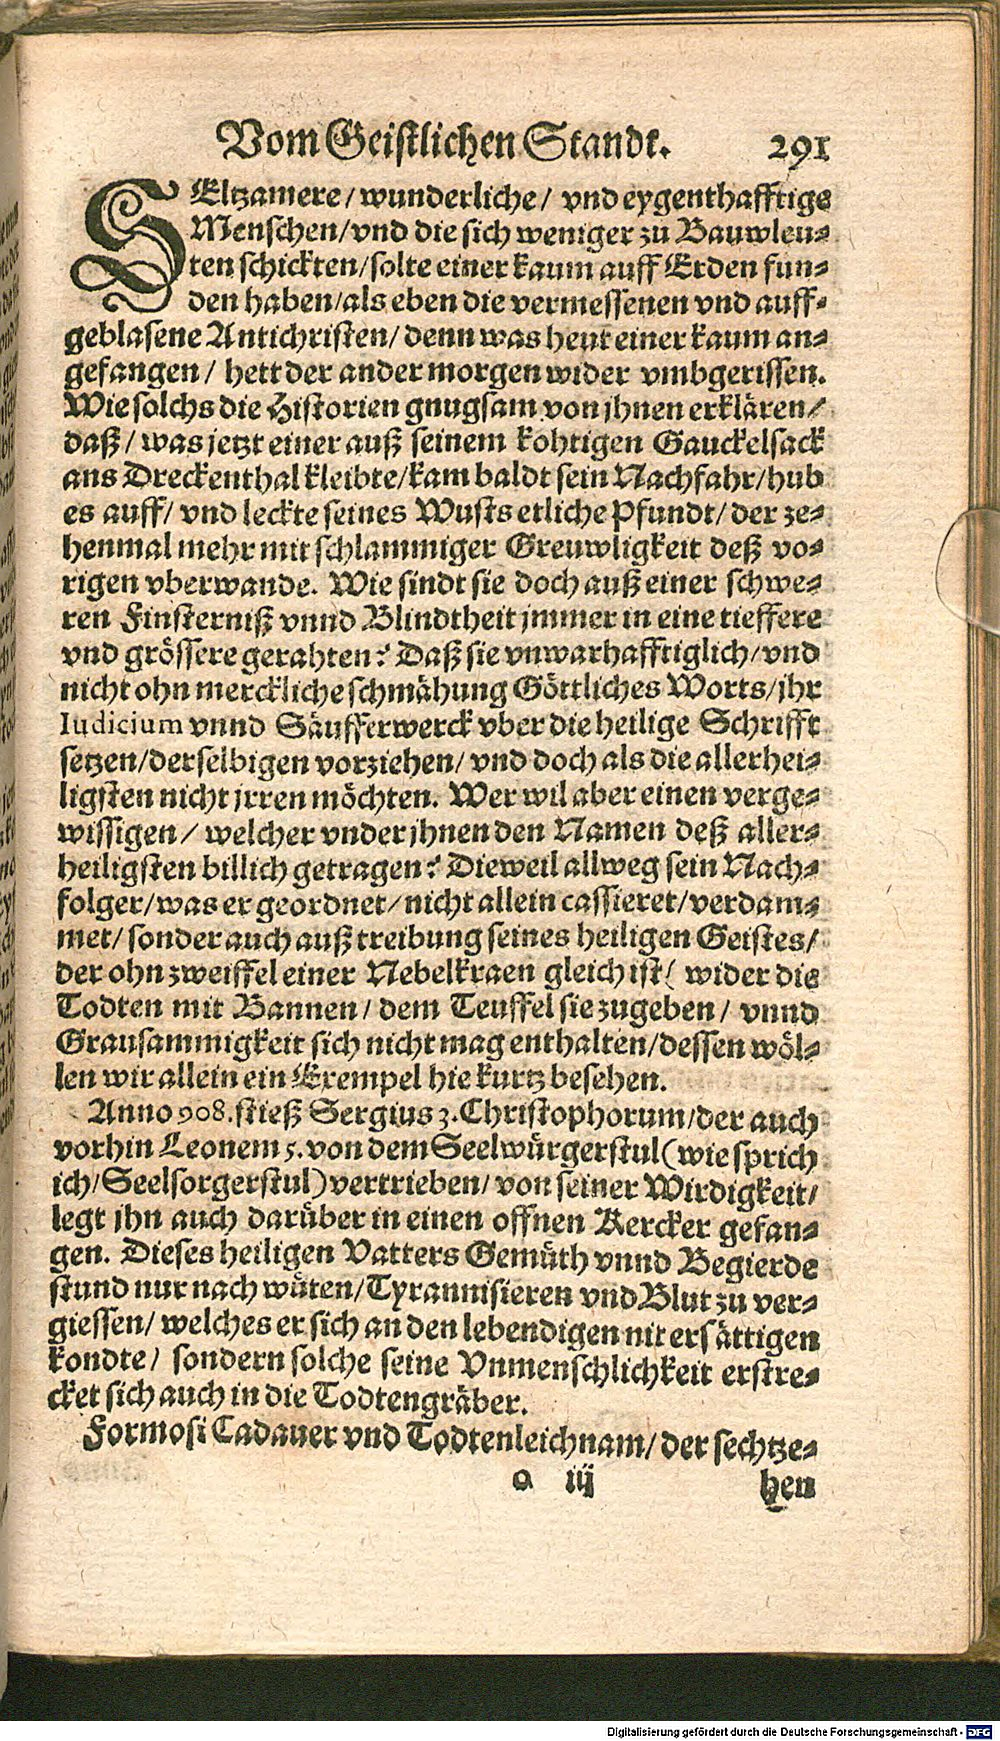 Vom Geistlichen Standt. 291
SEltzamere / wunderliche / vnd eygenthafftige
Menschen / vnd die sich weniger zu Bauwleu-
ten schickten / solte einer kaum auff Erden fun-
den haben / als eben die vermessenen vnd auff-
geblasene Antichristen / denn was heut einer kaum an-
gefangen / hett der ander morgen wider vmbgerissen.
Wie solchs die Historien gnugsam von jhnen erklären /
daß / was jetzt einer auß seinem kohtigen Gauckelsack
ans Dreckenthal kleibte / kam baldt sein Nachfahr / hub
es auff / vnd leckte seines Wusts etliche Pfundt / der ze-
henmal mehr mit schlammiger Greuwligkeit deß vo-
rigen vberwande. Wie sindt sie doch auß einer schwe-
ren Finsterniß vnnd Blindtheit jmmer in eine tieffere
vnd grössere gerahten? Daß sie vnwarhafftiglich / vnd
nicht ohn merckliche schmähung Göttliches Worts / jhr
Iudicium vnnd Säufferwerck vber die heilige Schrifft
setzen / derselbigen vorziehen / vnd doch als die allerhei-
ligsten nicht jrren möchten. Wer wil aber einen verge-
wissigen / welcher vnder jhnen den Namen deß aller-
heiligsten billich getragen? Dieweil allweg sein Nach-
folger / was er geordnet / nicht allein cassieret / verdam-
met / sonder auch auß treibung seines heiligen Geistes /
der ohn zweiffel einer Nebelkraen gleich ist ( wider die
Todten mit Bannen / dem Teuffel sie zugeben / vnnd
Grausammigkeit sich nicht mag enthalten / dessen wöl-
len wir allein ein Exempel hie kurtz besehen.
Anno 908. stieß Sergius 3. Christophorum / der auch
vorhin Leonem 5. von dem Seelwürgerstul (wie sprich
ich / Seelsorgerstul) vertrieben / von seiner Wirdigkeit /
legt jhn auch darüber in einen offnen Kercker gefan-
gen. Dieses heiligen Vatters Gemüth vnnd Begierde
stund nur nach wüten / Tyrannisieren vnd Blut zu ver-
giessen / welches er sich an den lebendigen nit ersättigen
kondte / sondern solche seine Vnmenschlichkeit erstre-
cket sich auch in die Todtengräber.
Formosi Cadauer vnd Todtenleichnam / der sechtze-
o iij hen
Digitalisierung gefördert durch die Deutsche Forschungsgemeinschaft - DFG